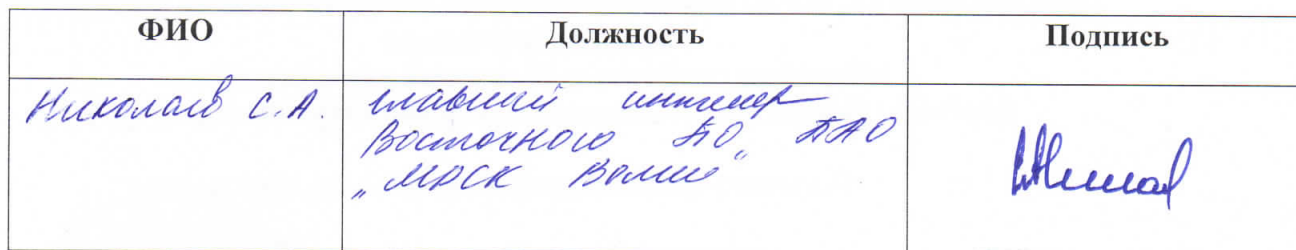 ФИО Должность Подпись
Николаев С.А. главный инженер
Восточного ПО ПАО
"МРСК Волги"